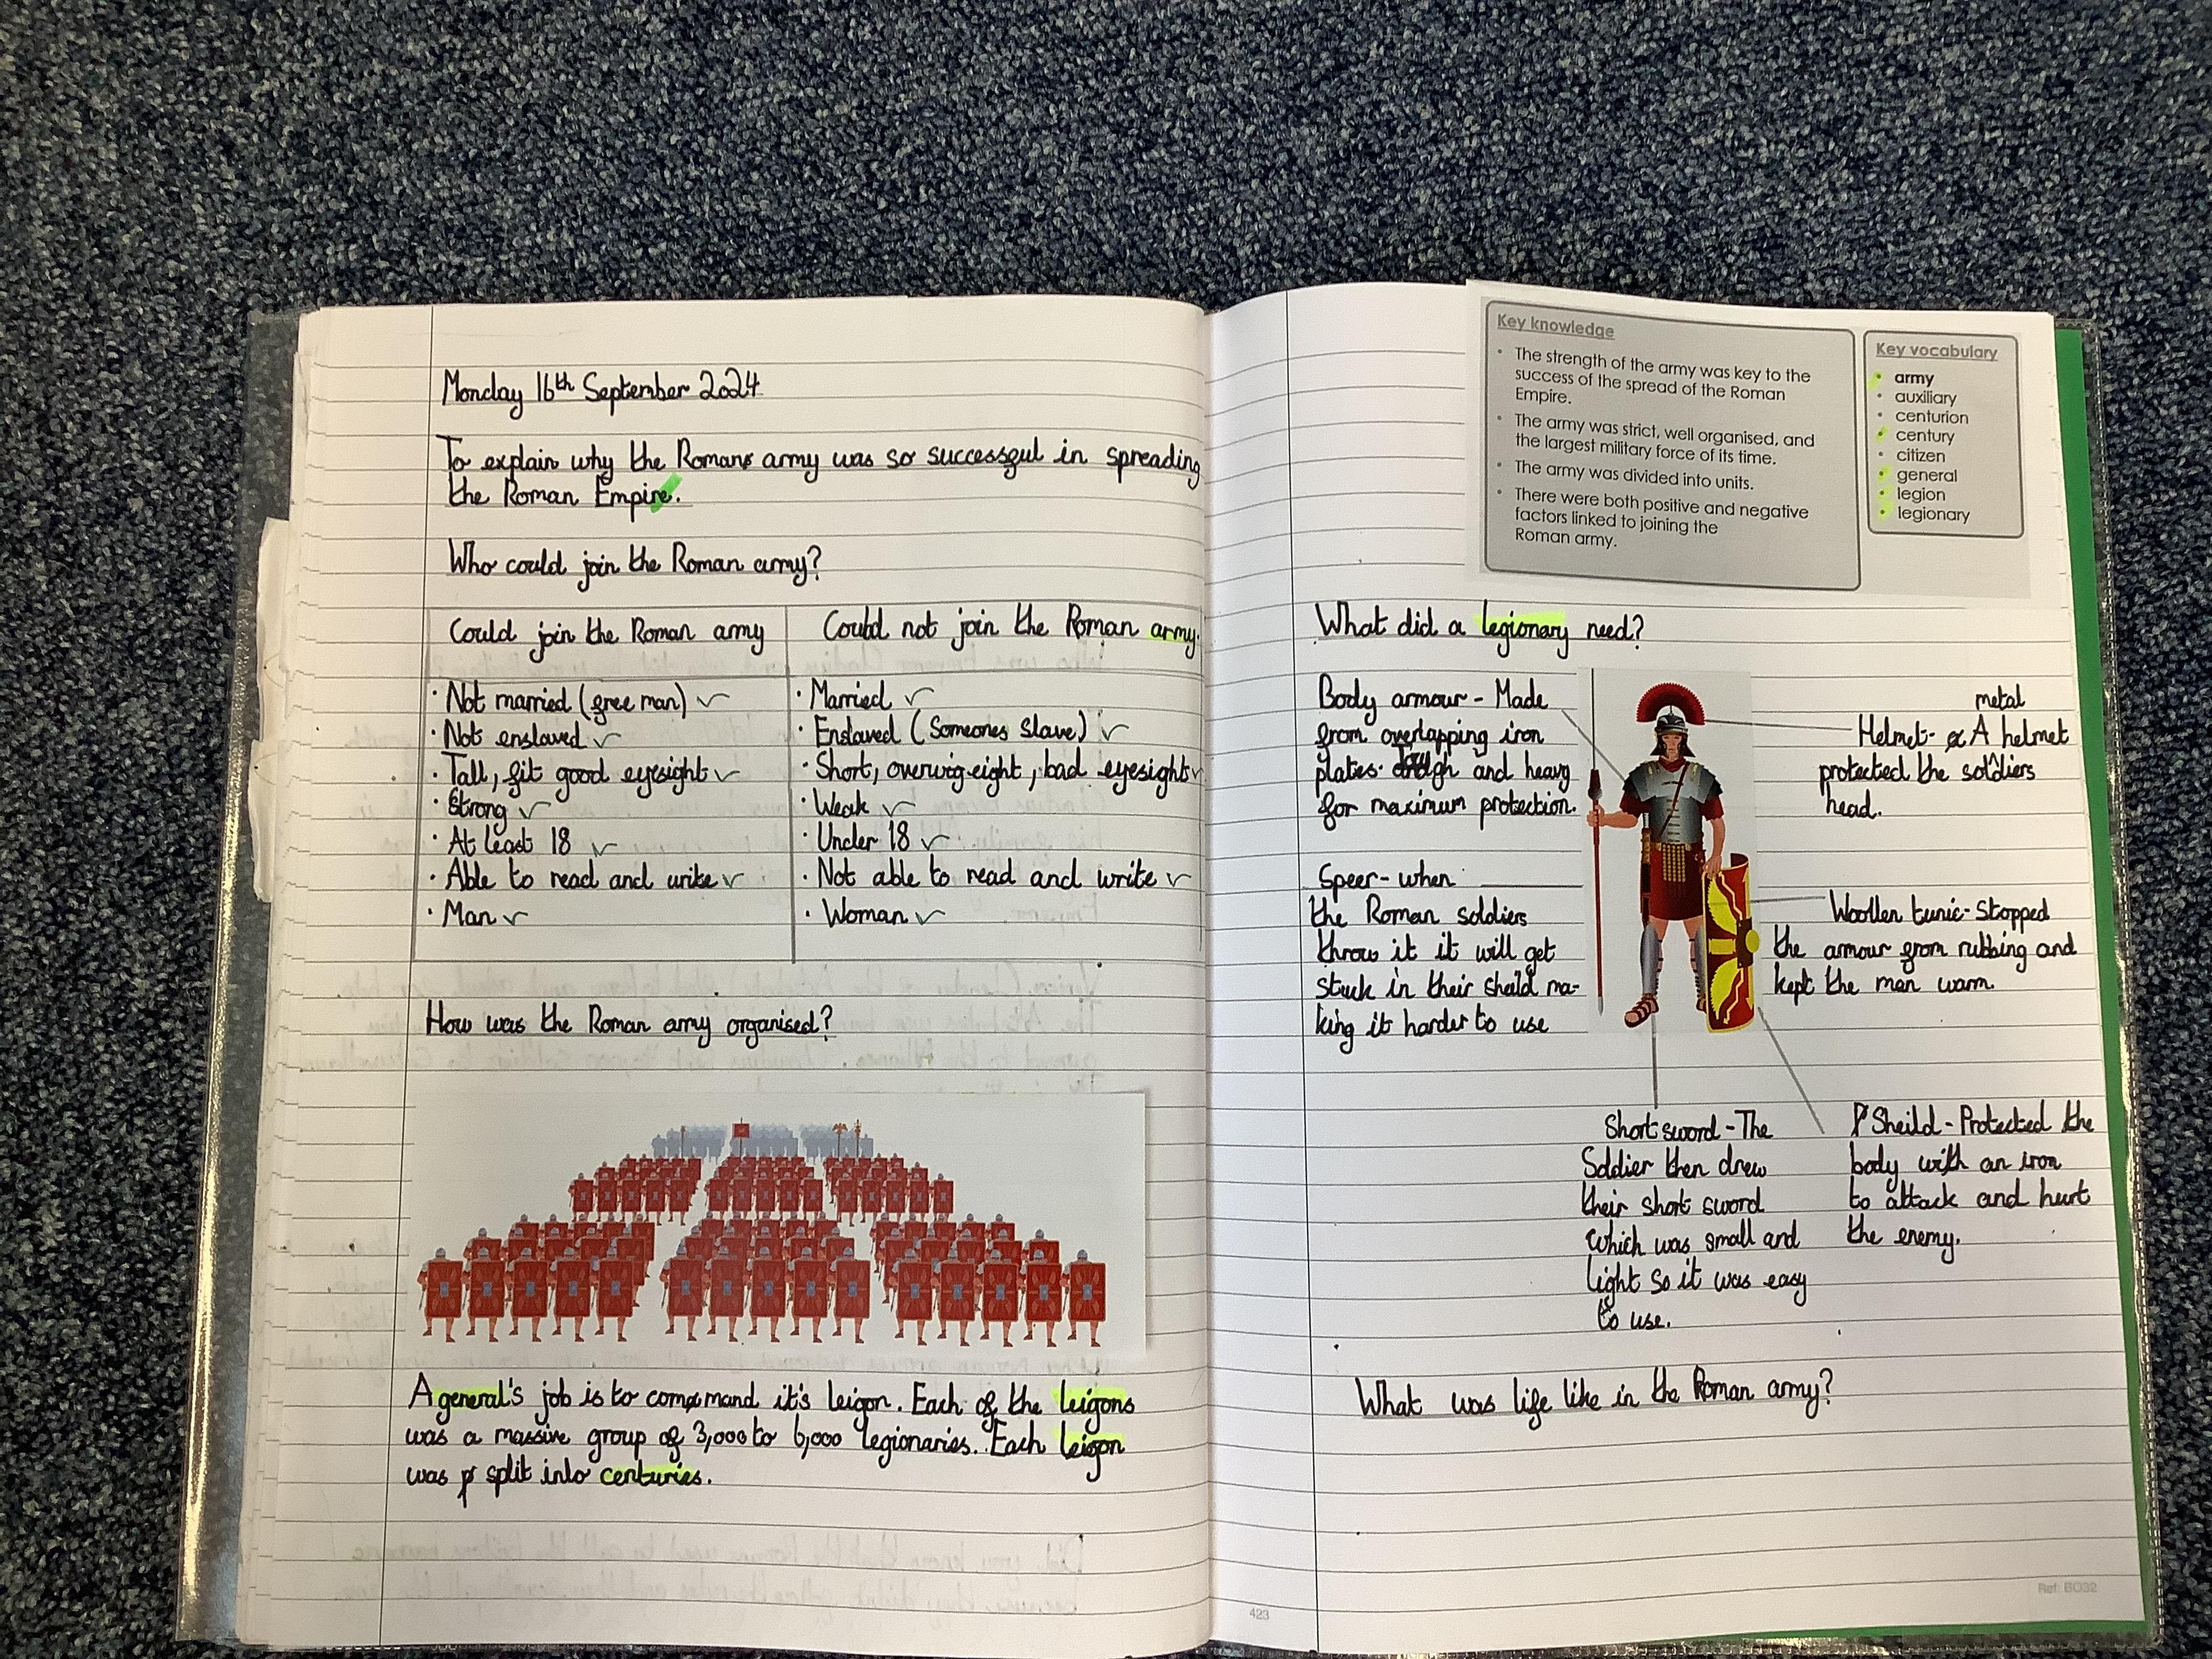 Monday 16th September 2024
To explain why the Romans army was so successful in spreading
the Roman Empire.
Who could join the Roman army?
Could join the Roman army
· Not married (free man) ✓
· Not enslaved ✓
· Tall, fit good eyesight ✓
· Strong ✓
· At least 18 ✓
· Able to read and write ✓
· Man ✓
Could not join the Roman army.
· Married ✓
· Enslaved (Someones Slave) ✓
· Short, overwig-eight, bad eyesight ✓
· Weak ✓
· Under 18 ✓
· Not able to read and write ✓
· Woman ✓
How was the Roman army organised?
A general's job is to command it's leigon. Each of the leigons
was a massive group of 3,000 to 6,000 legionaries. Each leigon
was split into centuries.
Key knowledge
• The strength of the army was key to the
success of the spread of the Roman
Empire.
• The army was strict, well organised, and
the largest military force of its time.
• The army was divided into units.
• There were both positive and negative
factors linked to joining the
Roman army.
Key vocabulary
• army
• auxiliary
• centurion
• century
• citizen
• general
• legion
• legionary
What did a legionary need?
Body armour - Made
from overlapping iron
plates. Tough and heavy
for maximum protection.
metal
Helmet- A helmet
protected the soldiers
head.
Speer- when
the Roman soldiers
throw it it will get
stuck in their sheild ma-
king it harder to use
Woollen tunic- Stopped
the armour from rubbing and
kept the man warm.
Short sword - The
Soldier then drew
their short sword
which was small and
light so it was easy
to use.
Sheild - Protected the
body with an iron
to attack and hurt
the enemy.
What was life like in the Roman army?
423
Ref: BO32